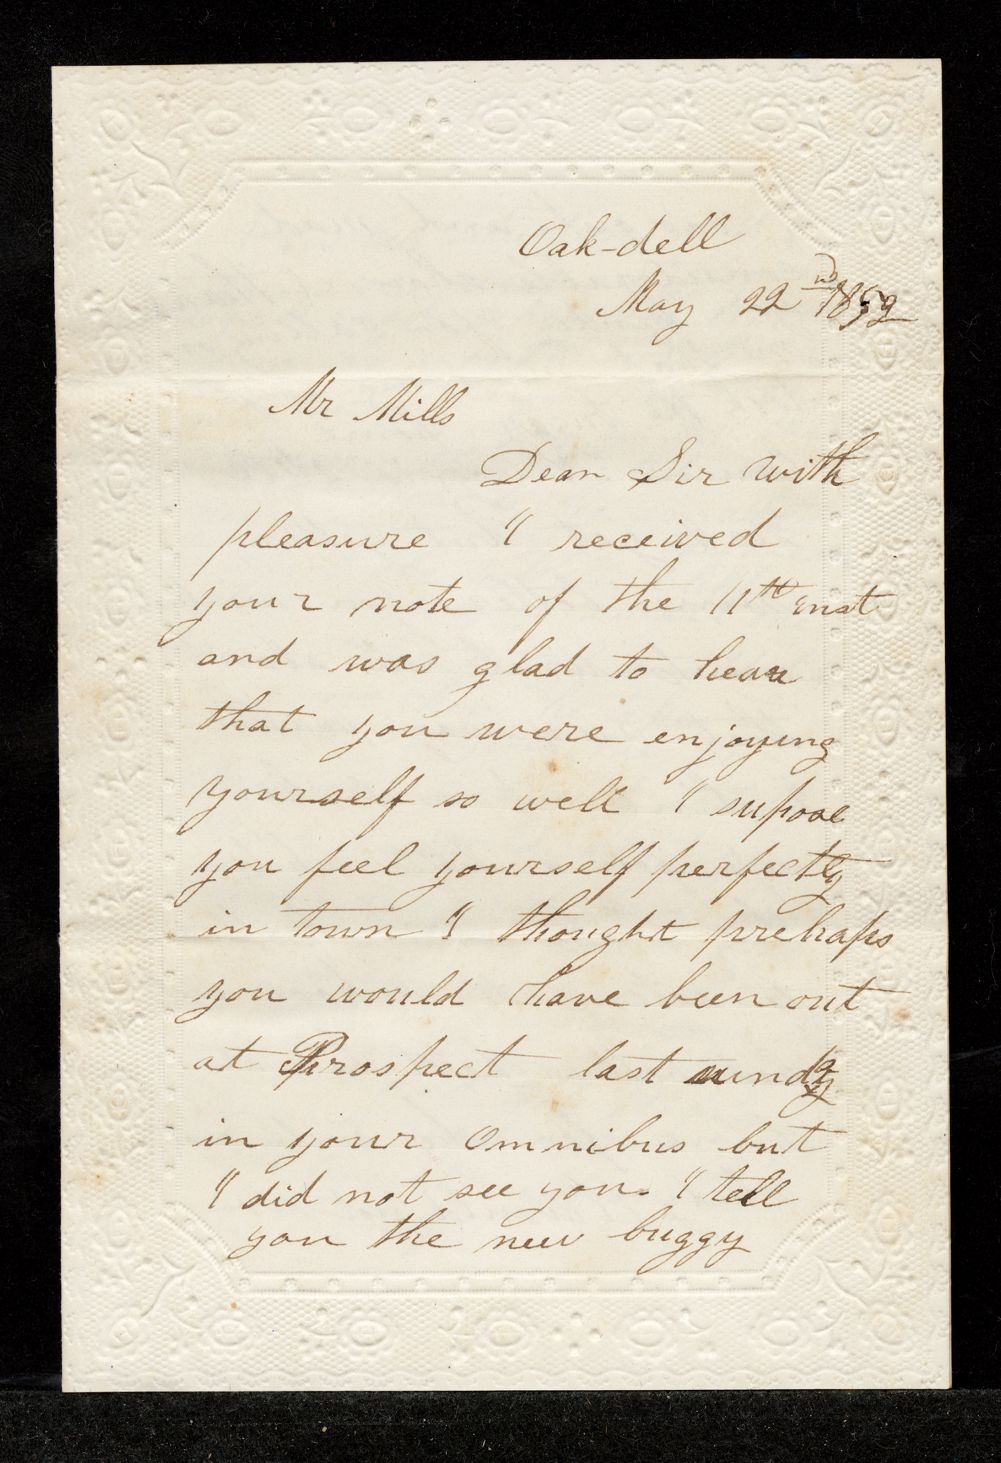 Oak-dell
May 22nd 1852
Mr Mills
Dear Sir With
pleasure I received
your note of the 11th inst
and was glad to hear
that you were enjoying
yourself so well I supose
you feel yourself perfectly
in town I thought prehaps
you would have been out
at Prospect last
in your Omnibus but
I did not see you. I tell
you the new buggy